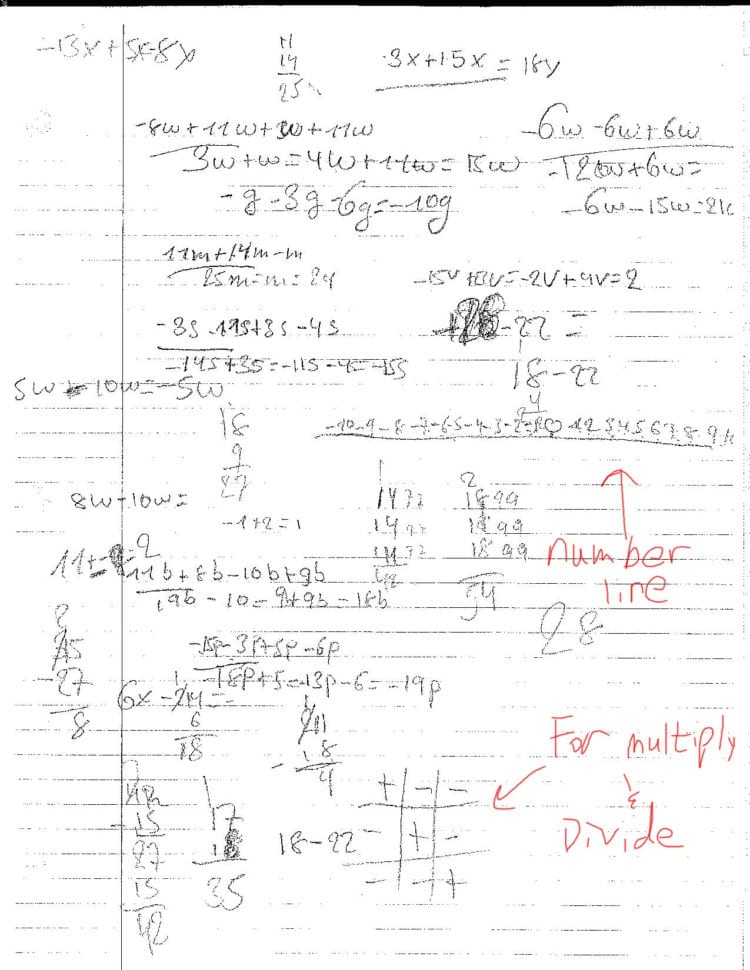 -13x+5x-8x
11
14
25
3x+15x=18y
-8w+11w+w+11w
3w+w=4w+11w=15w
-6w-6w+6w
-12w+6w=
-6w-15w=21
-g-3g-6g=-10g
11m+14m-m
25m-m=24
-15v+13v=-2v+4v=2
-3s-11s+3s-4s
-14s+3s=-11s-4s=-15s
-22=
18-22
4
5w-10w=-5w
18
9
27
-10-9-8-7-6-5-4-3-2-1 0 1 2 3 4 5 6 7 8 9
8w-10w=
-1+2=1
number
line
11+-9=2
11b+8b-10b+9b
19b-10=9+9b=18b
54
28
-15p-3p+5p-6p
-18p+5=-13p-6=-19p
-27
8
6x-24=
6
18
18
4
For multiply
&
Divide
+ - -
18-22
- + -
- - +
15
27
15
42
17
18
35